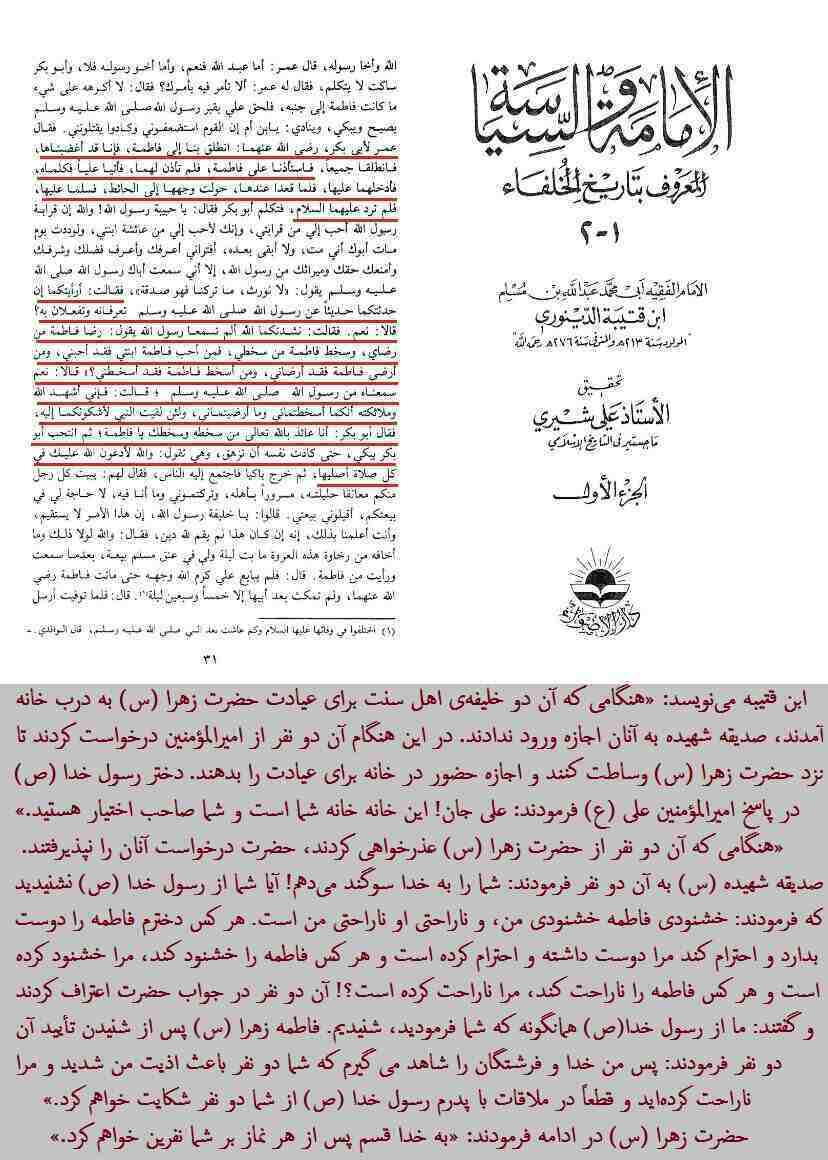 الإمامة والسياسة
المعروف بتاريخ الخلفاء
١-٢
الإمام الفقيه أبي محمد عبد الله بن مسلم
ابن قتيبة الدينوري
"المولود سنة ٢١٣ه والمتوفى سنة ٢٧٦ه رحمه الله"
تحقيق
الأستاذ علي شيري
ماجستير في التاريخ الإسلامي
الجزء الأول
دار الأضواء
الله وأخا رسوله، قال عمر: أما عبد الله فنعم، وأما أخو رسوله فلا، وأبو بكر
ساكت لا يتكلم، فقال له عمر: ألا تأمر فيه بأمرك؟ فقال: لا أكرهه على شيء
ما كانت فاطمة إلى جنبه، فلحق علي بقبر رسول الله صلى الله عليه وسلم
يصيح ويبكي، وينادي: يا بن أم إن القوم استضعفوني وكادوا يقتلونني. فقال
عمر لأبي بكر، رضي الله عنهما: انطلق بنا إلى فاطمة، فإنا قد أغضبناها،
فانطلقا جميعاً، فاستأذنا على فاطمة، فلم تأذن لهما، فأتيا علياً فكلماه،
فأدخلهما عليها، فلما قعدا عندها، حولت وجهها إلى الحائط، فسلما عليها،
فلم ترد عليهما السلام، فتكلم أبو بكر فقال: يا حبيبة رسول الله! والله إن قرابة
رسول الله أحب إلي من قرابتي، وإنك لأحب إلي من عائشة ابنتي، ولوددت يوم
مات أبوك أني مت، ولا أبقى بعده، أفتراني أعرفك وأعرف فضلك وشرفك
وأمنعك حقك وميراثك من رسول الله، إلا أني سمعت أباك رسول الله صلى الله
عليه وسلم يقول: «لا نورث، ما تركنا فهو صدقة»، فقالت: أرأيتكما إن
حدثتكما حديثاً عن رسول الله صلى الله عليه وسلم تعرفانه وتفعلان به؟
قالا: نعم. فقالت: نشدتكما الله ألم تسمعا رسول الله يقول: رضا فاطمة من
رضاي، وسخط فاطمة من سخطي، فمن أحب فاطمة ابنتي فقد أحبني، ومن
أرضى فاطمة فقد أرضاني، ومن أسخط فاطمة فقد أسخطني؟» قالا: نعم
سمعناه من رسول الله صلى الله عليه وسلم، قالت: فإني أشهد الله
وملائكته أنكما أسخطتماني وما أرضيتماني، ولئن لقيت النبي لأشكونكما إليه،
فقال أبو بكر: أنا عائذ بالله تعالى من سخطه وسخطك يا فاطمة؛ ثم انتحب أبو
بكر يبكي، حتى كادت نفسه أن تزهق، وهي تقول: والله لأدعون الله عليك في
كل صلاة أصليها، ثم خرج باكيا فاجتمع إليه الناس، فقال لهم: يبيت كل رجل
منكم معانقا حليلته، مسروراً بأهله، وتركتموني وما أنا فيه، لا حاجة لي في
بيعتكم، أقيلوني بيعتي. قالوا: يا خليفة رسول الله، إن هذا الأمر لا يستقيم،
وأنت أعلمنا بذلك، إنه إن كان هذا لم يقم لله دين، فقال: والله لولا ذلك وما
أخافه من رخاوة هذه العروة ما بت ليلة ولي في عنق مسلم بيعة، بعدما سمعت
ورأيت من فاطمة. قال: فلم يبايع علي كرم الله وجهه حتى ماتت فاطمة رضي
الله عنهما، ولم تمكث بعد أبيها إلا خمساً وسبعين ليلة(١). قال: فلما توفيت أرسل
(١) اختلفوا في وفاتها عليها السلام وكم عاشت بعد النبي صلى الله عليه وسلم، قال الواقدي. =
٣١
ابن قتیبه می‌نویسد: «هنگامی که آن دو خلیفه‌ی اهل سنت برای عیادت حضرت زهرا (س) به درب خانه
آمدند، صدیقه شهیده به آنان اجازه ورود ندادند. در این هنگام آن دو نفر از امیرالمؤمنین درخواست کردند تا
نزد حضرت زهرا (س) وساطت کنند و اجازه حضور در خانه برای عیادت را بدهند. دختر رسول خدا (ص)
در پاسخ امیرالمؤمنین علی (ع) فرمودند: علی جان! این خانه خانه شما است و شما صاحب اختیار هستید.»
«هنگامی که آن دو نفر از حضرت زهرا (س) عذرخواهی کردند، حضرت درخواست آنان را نپذیرفتند.
صدیقه شهیده (س) به آن دو نفر فرمودند: شما را به خدا سوگند می‌دهم! آیا شما از رسول خدا (ص) نشنیدید
که فرمودند: خشنودی فاطمه خشنودی من، و ناراحتی او ناراحتی من است. هر کس دخترم فاطمه را دوست
بدارد و احترام کند مرا دوست داشته و احترام کرده است و هر کس فاطمه را خشنود کند، مرا خشنود کرده
است و هر کس فاطمه را ناراحت کند، مرا ناراحت کرده است؟! آن دو نفر در جواب حضرت اعتراف کردند
و گفتند: ما از رسول خدا(ص) همانگونه که شما فرمودید، شنیدیم. فاطمه زهرا (س) پس از شنیدن تأیید آن
دو نفر فرمودند: پس من خدا و فرشتگان را شاهد می گیرم که شما دو نفر باعث اذیت من شدید و مرا
ناراحت کرده‌اید و قطعاً در ملاقات با پدرم رسول خدا (ص) از شما دو نفر شکایت خواهم کرد.»
حضرت زهرا (س) در ادامه فرمودند: «به خدا قسم پس از هر نماز بر شما نفرین خواهم کرد.»